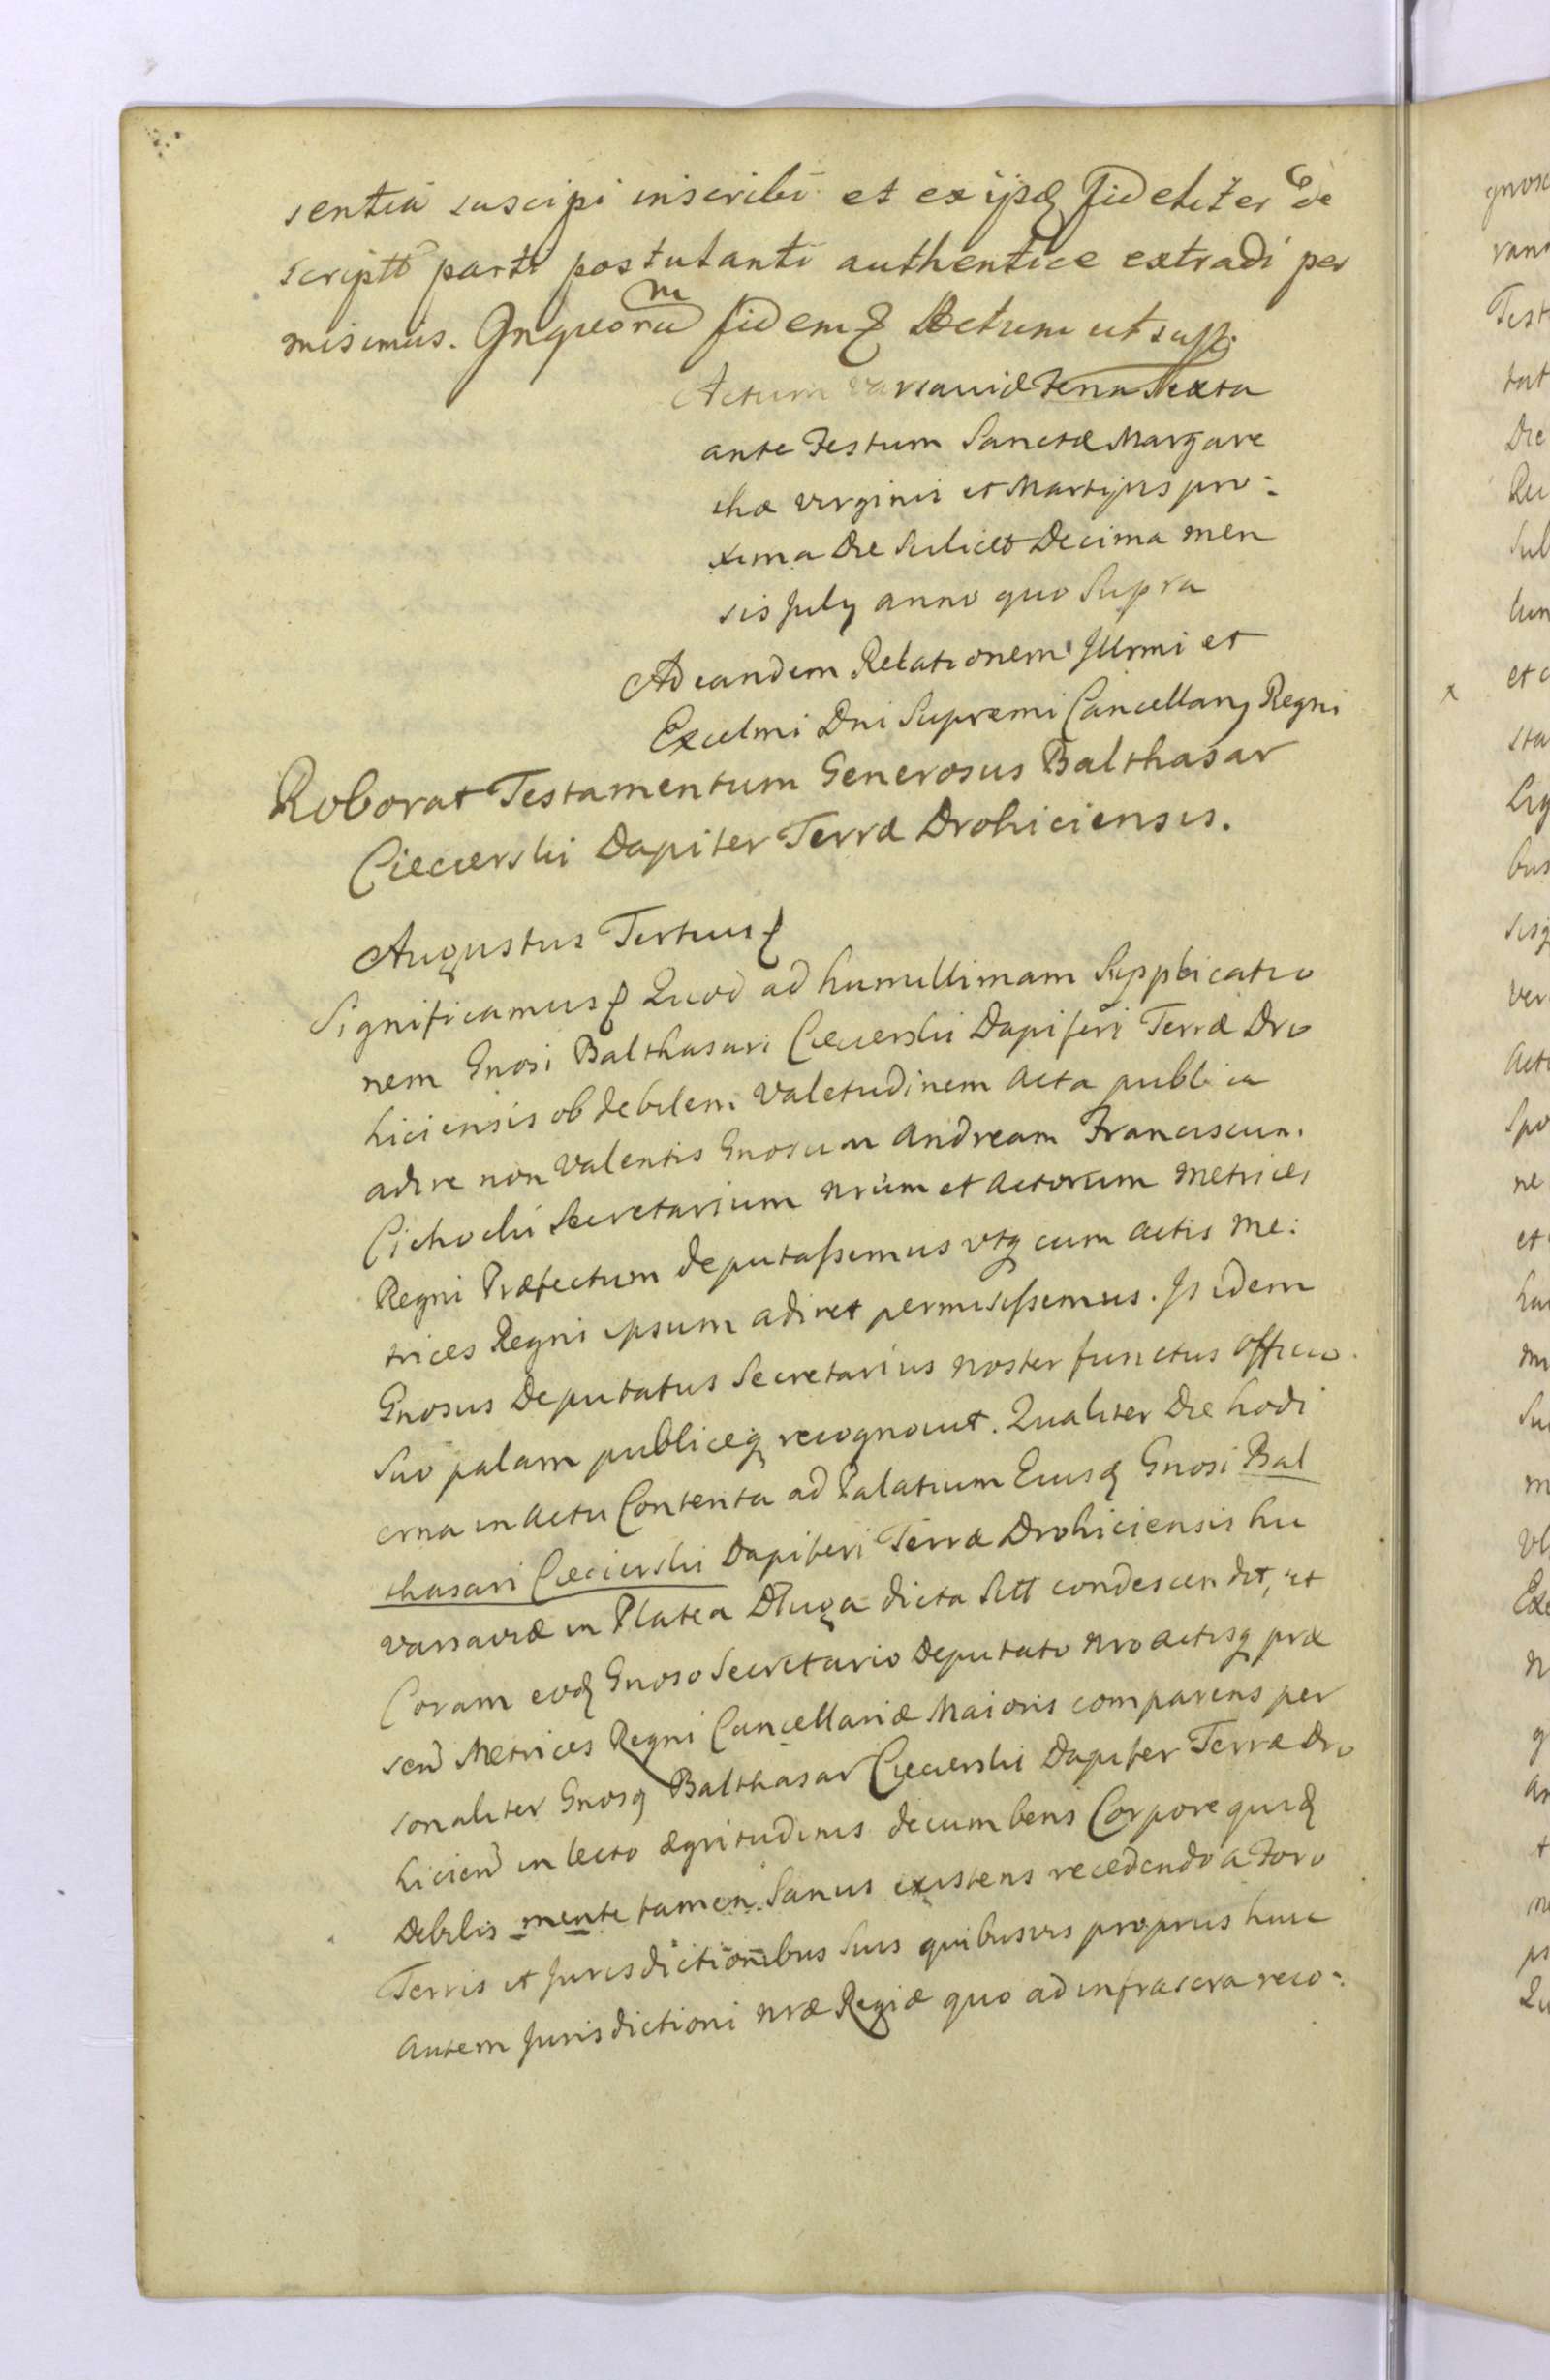 sentia suscipi inscribi et ex ijsq fideliter de
scriptt parti postulanti authentice extradi per
misimus. In quorum fidem Actum ut sup.
Actum Varsaviæ Feria Sexta
ante Festum Sanctæ Margare
thæ virginis et Martyris pro:
xima Die Scilicet Decima men
sis July anno quo Supra
Ad eandem Relationem Jllrmi et
Excelmi Dni Supremi Cancellarij Regni
Roborat Testamentum Generosus Balthasar
Ciecierski Dapifer Terræ Drohiciensis.
Augustus Tertius
Significamus Quod ad humillimam Supplicatio
nem Gnosi Balthasari Ciecierski Dapiferi Terræ Dro
hiciensis ob debilem valetudinem Acta publica
adire non valentis Gnosum Andream Franciscum
Cichocki Secretarium nrum et Actorum Metrices
Regni Præfectum deputassemus vtq cum actis Me:
trices Regni ipsum adiret permisissemus. Js idem
Gnosus Deputatus Secretarius noster functus officio
suo palam publiceq recognovit. Qualiter Die hodi
erna in actu Contenta ad Palatium Eiusd Gnosi Bal
thasari Ciecierski Dapiferi Terræ Drohiciensis hu
Varsaviæ in Platea Długa dicta Sitt condescendit, et
Coram eod Gnoso Secretario Deputato nro actisq præ
sen Metrices Regni Cancellariæ Maioris comparens per
sonaliter Gnosq Balthasar Ciecierski Dapifer Terræ Dro
hicien in lecto ægritudinis decumbens Corpore quid
Debilis mente tamen Sanus existens recedendo a Foro
Terris et Jurisdictionibus Suis quibusvis proprijs huic
autem Jurisdictioni nræ Regiæ quo ad infrascra reco: